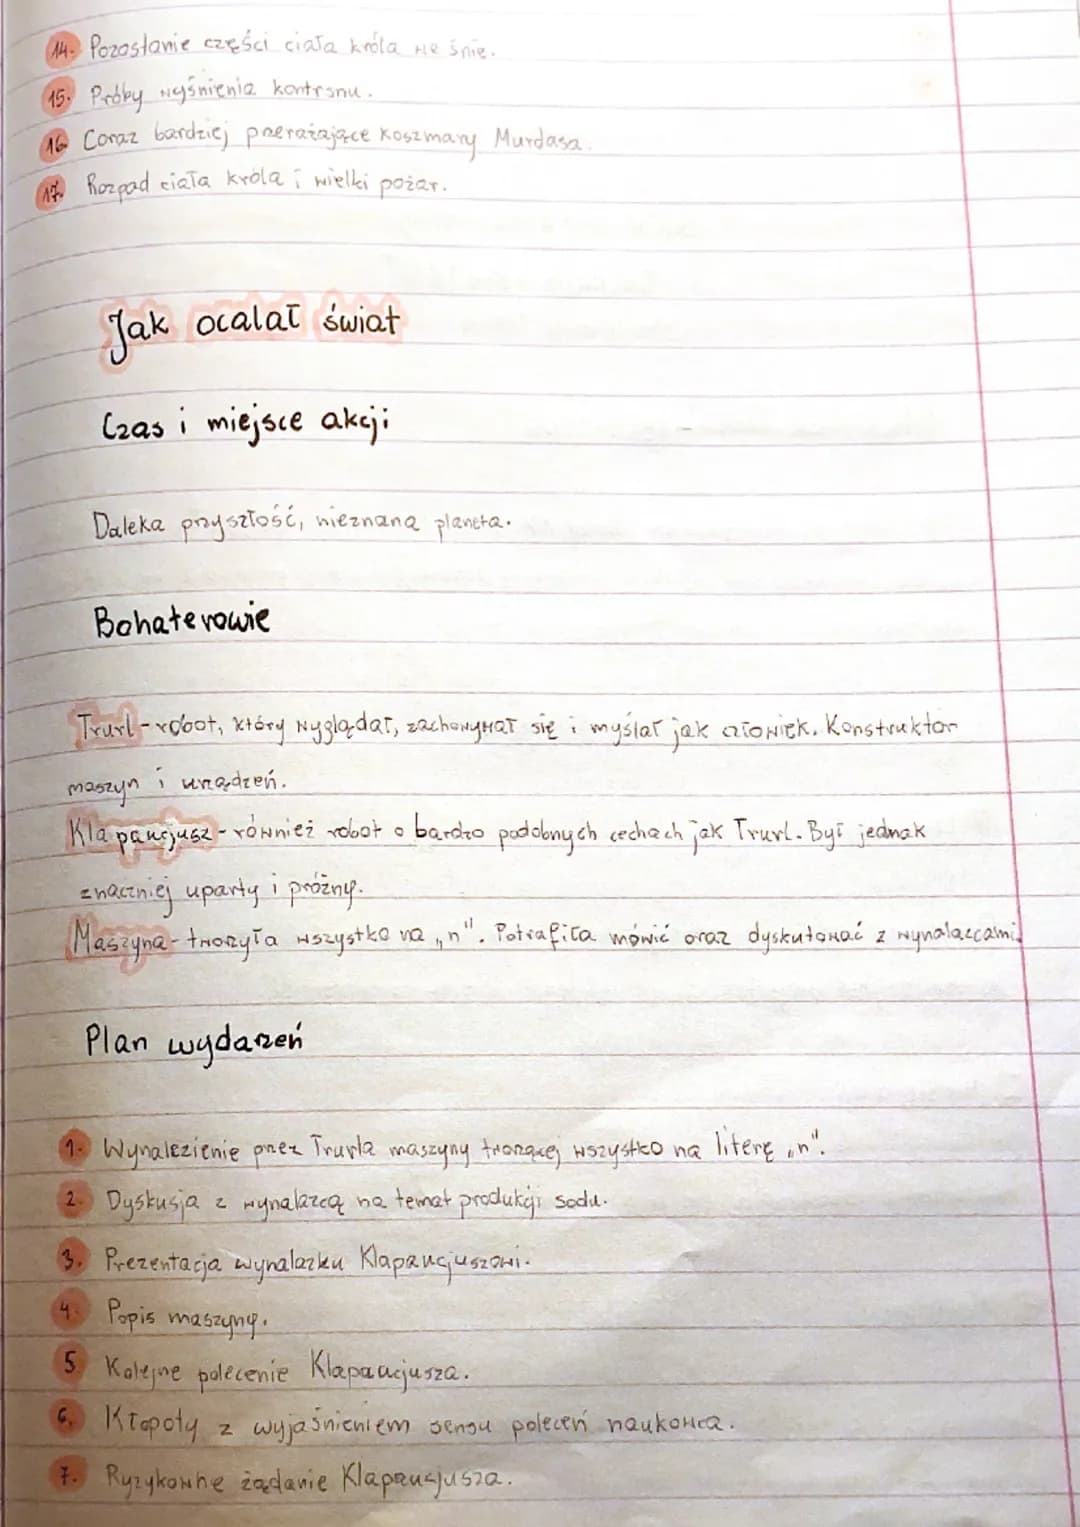 14. Pozostanie części ciała króla we śnie.
15. Próby wyśnienia kontrsnu.
16. Coraz bardziej przerażające koszmary Murdasa.
17. Rozpad ciała króla i wielki pożar.
Jak ocalał świat
Czas i miejsce akcji
Daleka przyszłość, nieznana planeta.
Bohaterowie
Trurl - robot, który wyglądał, zachowywał się i myślał jak człowiek. Konstruktor
maszyn i urządzeń.
Klapaucjusz - również robot o bardzo podobnych cechach jak Trurl. Był jednak
znaczniej uparty i próżny.
Maszyna - tworzyła wszystko na „n". Potrafiła mówić oraz dyskutować z wynalazcami.
Plan wydarzeń
1. Wynalezienie przez Trurla maszyny tworzącej wszystko na literę „n".
2. Dyskusja z wynalazcą na temat produkcji sodu.
3. Prezentacja wynalazku Klapaucjuszowi.
4. Popis maszyny.
5. Kolejne polecenie Klapaucjusza.
6. Kłopoty z wyjaśnieniem sensu poleceń naukowca.
7. Ryzykowne żądanie Klapaucjusza.